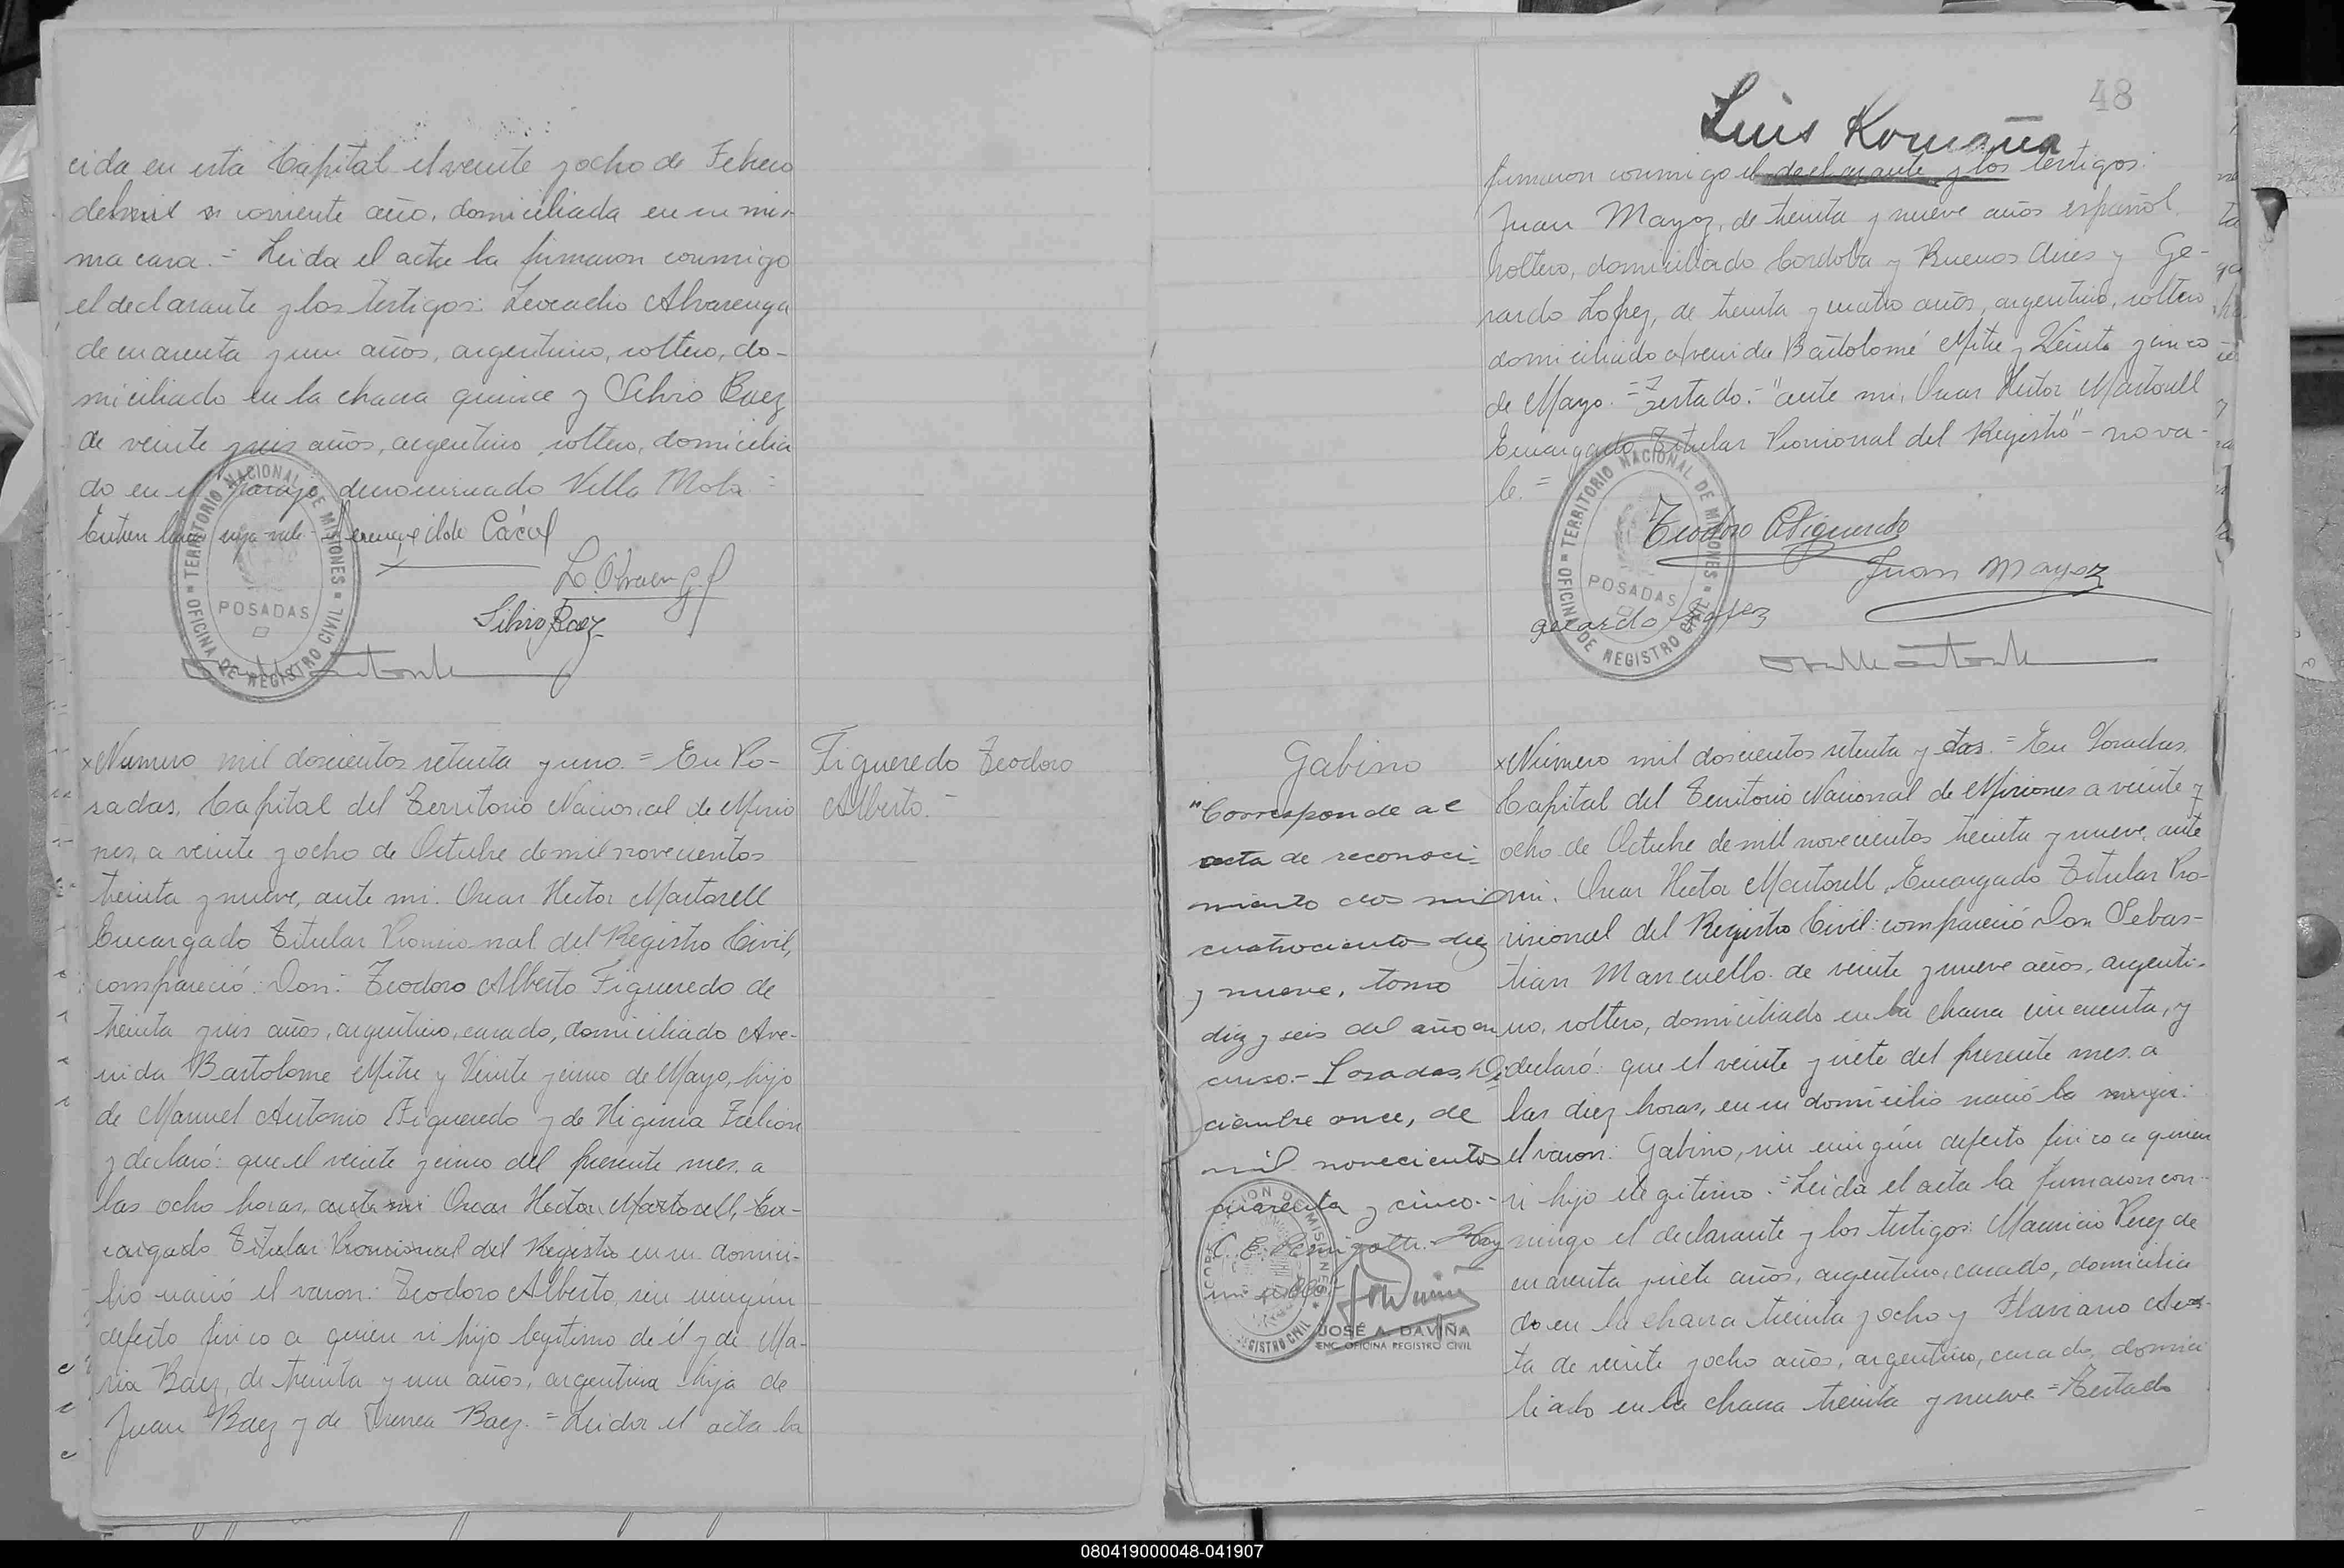 cida en esta Capital el veinte y ocho de Febrero
del corriente año, domiciliada en su mis-
ma casa.= Leida el acta la firmaron conmigo
el declarante y los testigos: Leocadio Alvarenga
de cuarenta y un años, argentino, soltero, do-
miciliado en la chacra quince y Silvio Baez
de veinte y seis años, argentino, soltero, domicilia
do en el paraje denominado Villa Mola.=
Silvio Baez
TERRITORIO NACIONAL DE MISIONES
POSADAS
OFICINA DE REGISTRO CIVIL
x Numero mil doscientos setenta y uno.= En Po-
sadas, Capital del Territorio Nacional de Misio
nes, a veinte y ocho de Octubre de mil novecientos
treinta y nueve, ante mi. Oscar Hector Martorell
Encargado Titular Provisional del Registro Civil,
compareció: Don: Teodoro Alberto Figueredo de
treinta y seis años, argentino, casado, domiciliado Ave-
nida Bartolome Mitre y Veinte y cinco de Mayo, hijo
de Manuel Antonio Figueredo y de Higinia Falcion
y declaró: que el veinte y cinco del presente mes a
las ocho horas, ante mi Oscar Hector Martorell, En-
cargado Titular Provisional del Registro en su domici-
lio nació el varon: Teodoro Alberto, sin ningún
defecto fisico a quien si hijo legitimo de él y de Ma-
ria Baez, de treinta y un años, argentina hija de
Juan Baez y de Irenea Baez.= Leida el acta la
Figueredo Teodoro
Alberto.-
48
Luis Romaña
firmaron conmigo el declarante y los testigos:
Juan Mayoz, de treinta y nueve años español,
soltero, domiciliado Cordoba y Buenos Aires y Ge-
rardo Lopez, de treinta y cuatro años, argentino, soltero
domiciliado Avenida Bartolomé Mitre y Veinte y cinco
de Mayo.= Testado:- "ante mi, Oscar Hector Martorell
Encargado Titular Provisional del Registro"- no va-
le.=
Teodoro A Figueredo
Juan Mayoz
Gerardo Lopez
TERRITORIO NACIONAL DE MISIONES
POSADAS
OFICINA DE REGISTRO CIVIL
Gabino
"Corresponde al
acta de reconoci-
miento dos mil
cuatrocientos diez
y nueve, tomo
diez y seis del año en
curso.- Posadas, Di
ciembre once, de
mil novecientos
cuarenta y cinco.-
JOSÉ A. DAVIÑA
ENC. OFICINA REGISTRO CIVIL
x Número mil doscientos setenta y dos.= En Posadas,
Capital del Territorio Nacional de Misiones a veinte y
ocho de Octubre de mil novecientos treinta y nueve, ante
mi. Oscar Hector Martorell, Encargado Titular Pro-
visional del Registro Civil: compareció Don Sebas-
tian Mancuello de veinte y nueve años, argenti-
no, soltero, domiciliado en la chacra cincuenta, y
declaró: que el veinte y siete del presente mes a
las diez horas, en su domicilio nació la mujer:
el varon: Gabino, sin ningún defecto fisico a quien
si hijo ilegitimo.= Leida el acta la firmaron con-
migo el declarante y los testigos: Mauricio Perez de
cuarenta y siete años, argentino, casado, domicilia
do en la chacra treinta y ocho y Flaviano Acos-
ta de veinte y ocho años, argentino, casado, domici
liado en la chacra treinta y nueve.= Testado
080419000048-041907